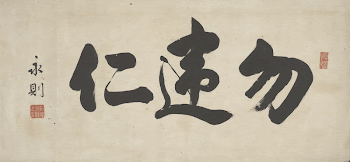 勿違仁
永則